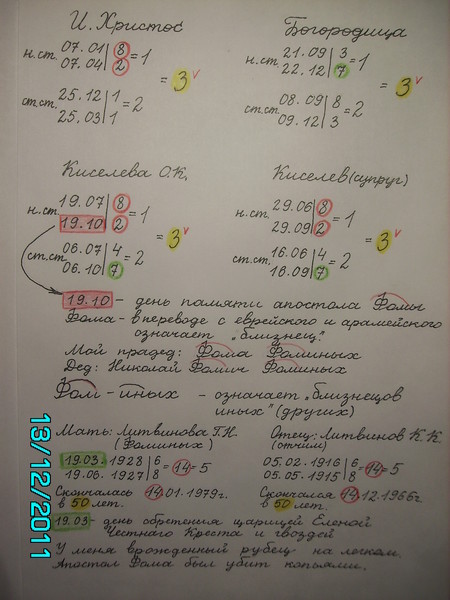 И. Христос
н.ст. 07.01 | 8 = 1
07.04 | 2
= 3
ст.ст. 25.12 | 1 = 2
25.03 | 1
Богородица
н.ст. 21.09 | 3 = 1
22.12 | 7
= 3
ст.ст. 08.09 | 8 = 2
09.12 | 3
Киселева О.К.
н.ст. 19.07 | 8 = 1
19.10 | 2
= 3
ст.ст. 06.07 | 4 = 2
06.10 | 7
Киселев (супруг)
н.ст. 29.06 | 8 = 1
29.09 | 2
= 3
ст.ст. 16.06 | 4 = 2
16.09 | 7
19.10 - день памяти апостола Фомы
Фома - в переводе с еврейского и арамейского
означает „близнец".
Мой прадед: Фома Фоминых
Дед: Николай Фомич Фоминых
Фом - иных - означает „близнецов
иных" (других)
Мать: Литвинова Г.Н.
(Фоминых)
19.03.1928 | 6 = 14 = 5
19.06.1927 | 8
Скончалась 14.01.1979г.
в 50 лет.
Отец: Литвинов К.К.
(отчим)
05.02.1916 | 6 = 14 = 5
05.05.1915 | 8
Скончался 14.12.1966г.
в 50 лет.
19.03 - день обретения царицей Еленой
Честнаго Креста и гвоздей
У меня врожденный рубец на легком.
Апостол Фома был убит копьями.
13/12/2011